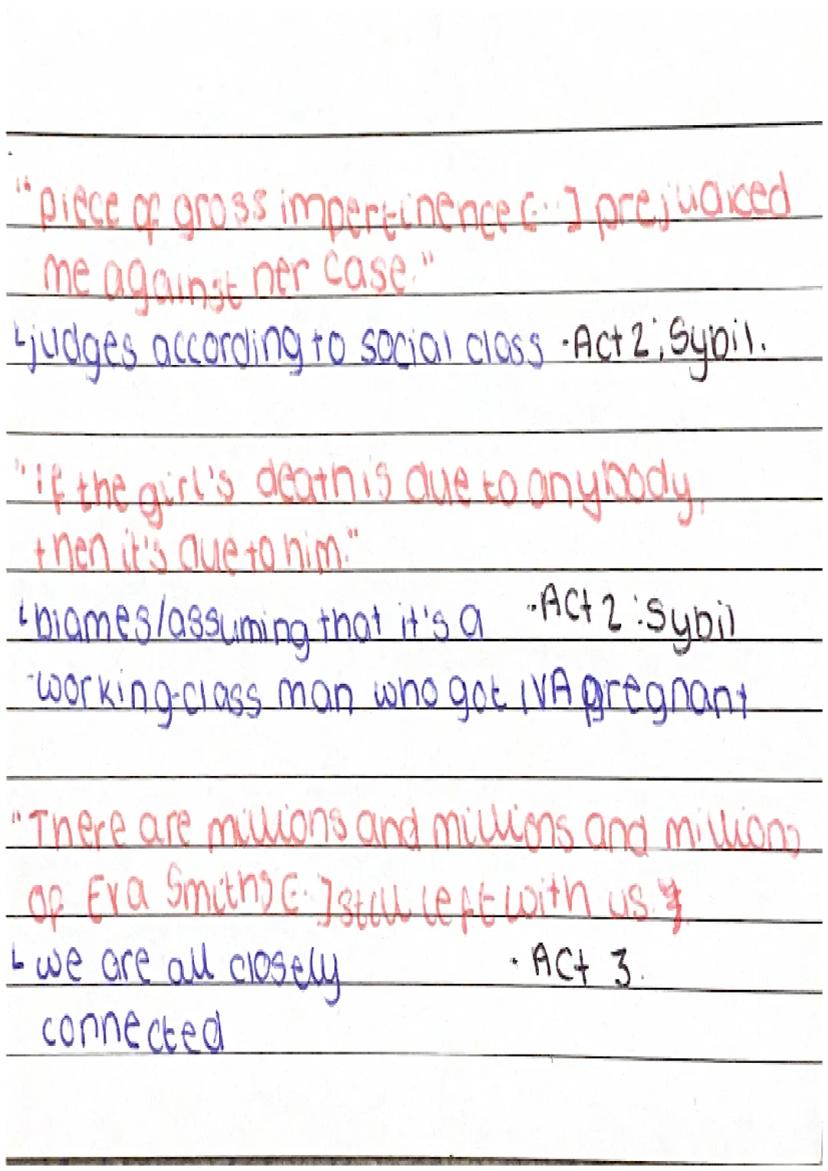 "piece of gross impertinence [...] prejudiced
me against her case."
↳judges according to social class ·Act 2; Sybil.
"if the girl's death is due to anybody,
then it's due to him."
↳blames/assuming that it's a -Act 2 : Sybil
-working-class man who got EVA pregnant
"There are millions and millions and millions
of Eva Smiths [...] still left with us."
↳ we are all closely · Act 3.
connected